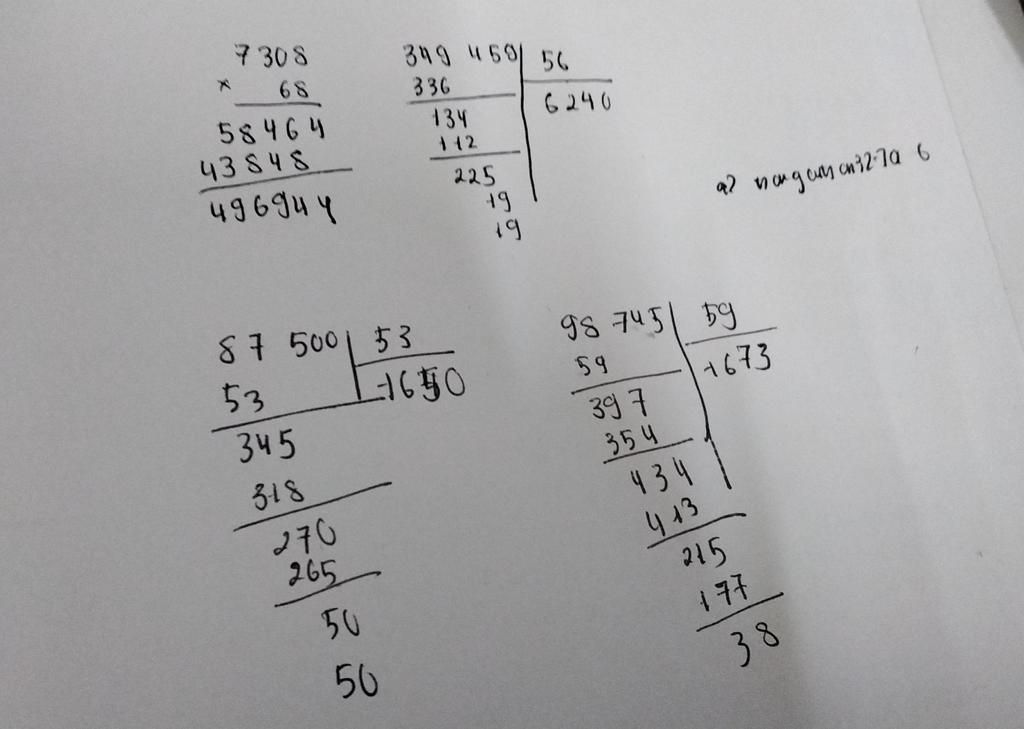 7308
× 68
58464
43848
496944
349 450 56
336 6240
134
112
225
19
19
a)
87 500 53
53 1650
345
318
270
265
50
50
98 745 59
59 1673
397
354
434
413
215
177
38